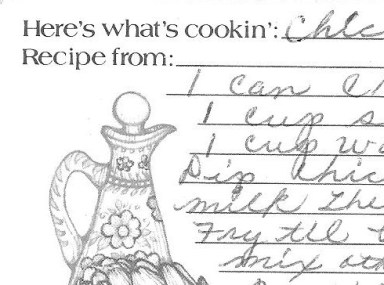 Here's what's cookin': Chic
Recipe from:
1 can
1 cup s
1 cup w
Dip chic
milk the
Fry till
mix